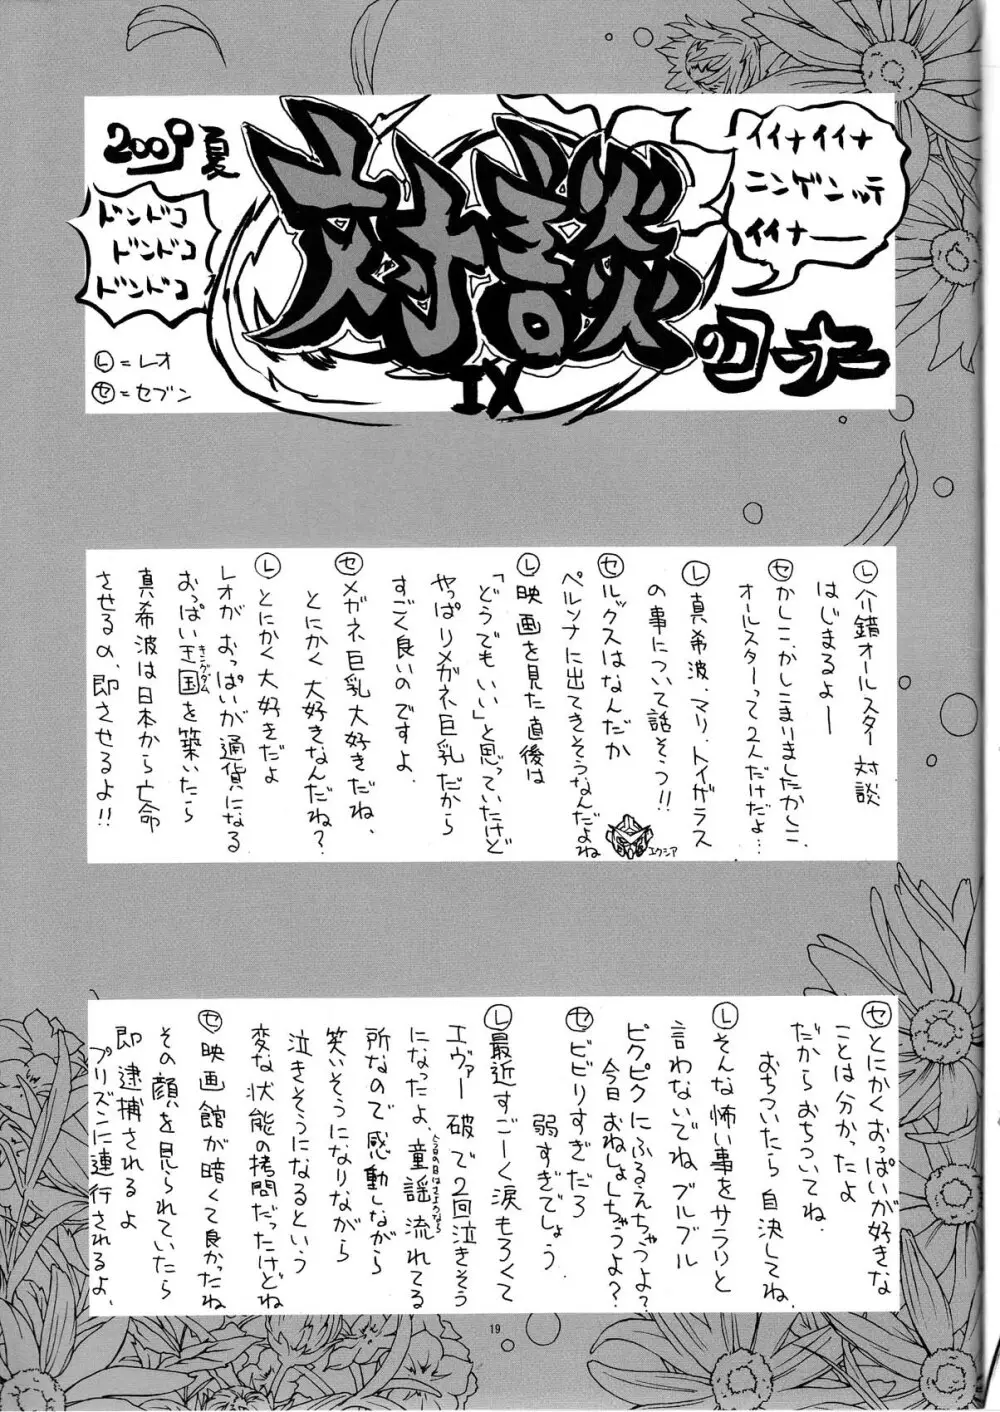 2009夏
対談
IX
のコーナー
イイナイイナ
ニンゲンッテ
イイナ――
ドンドコ
ドンドコ
ドンドコ
Ⓛ=レオ
㋝=セブン
Ⓛ介錯オールスター対談
はじまるよー
㋝かしこ、かしこまりましたかしこ
オールスターって2人だけだよ…
Ⓛ真希波・マリ・トイザラス
の事について話そう!!
㋝ルックスはなんだか
ペルソナに出てきそうなんだよね
エクシア
Ⓛ映画を見た直後は
「どうでもいい」と思っていたけど
やっぱりメガネ巨乳だから
すごく良いのですよ.
㋝メガネ巨乳大好きだね、
とにかく大好きなんだね?
Ⓛとにかく大好きだよ
レオがおっぱいが通貨になる
おっぱい王国を築いたら
キングダム
真希波は日本から亡命
させるの、即させるよ!!
㋝とにかくおっぱいが好きな
ことは分かったよ
だからおちついてね.
おちついたら自決してね.
Ⓛそんな怖い事をサラリと
言わないでね ブルブル
ピクピクにふるえちゃうよ?
今日おねしょしちゃうよ?
㋝ビビりすぎだろ
弱すぎでしょう
Ⓛ最近すごーく涙もろくて
エヴァー破で2回泣きそう
になったよ、童謡流れてる
今日の日はさようなら
所なので感動しながら
笑いそうになりながら
泣きそうになるという
変な状態の拷問だったけどね
㋝映画館が暗くて良かったね
その顔を見られていたら
即逮捕されるよ
プリズンに連行されるよ.
19